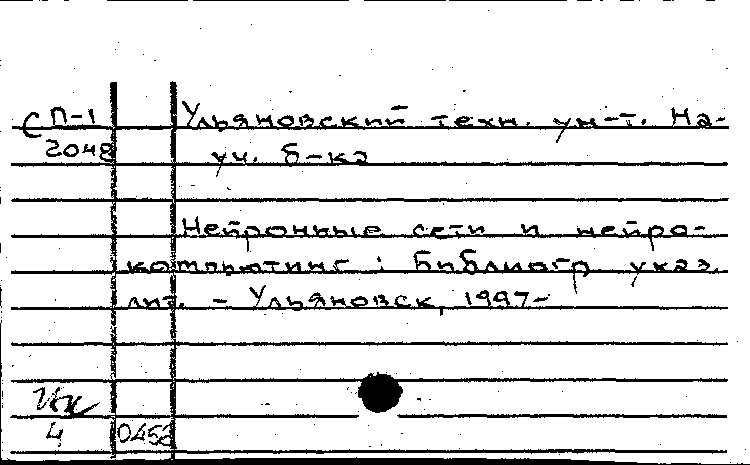 С П-1 Ульяновский техн. ун-т. На-
2048 уч. б-ка
Нейронные сети и нейро-
компьютинг : Библиогр. указ.
лит. - Ульяновск, 1997-
4 0456